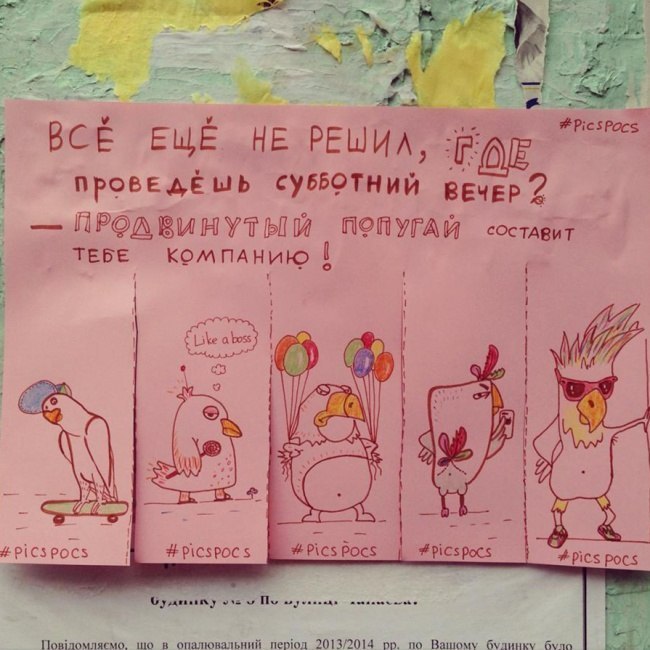 #PICSPOCS
ВСЁ ЕЩЁ НЕ РЕШИЛ, ГДЕ
ПРОВЕДЁШЬ СУББОТНИЙ ВЕЧЕР?
— ПРОДВИНУТЫЙ ПОПУГАЙ СОСТАВИТ
ТЕБЕ КОМПАНИЮ!
Like a boss
#PICSPOCS
#PICSPOCS
#PICSPOCS
#PICSPOCS
#PICSPOCS
будинку № по вулиці Чапаєва!
Повідомляємо, що в опалювальний період 2013/2014 рр. по Вашому будинку було